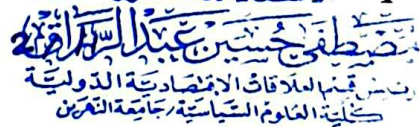 مصطفى حسين عبد الرزاق
رئيس قسم العلاقات الاقتصادية الدولية
كلية العلوم السياسية / جامعة النهرين